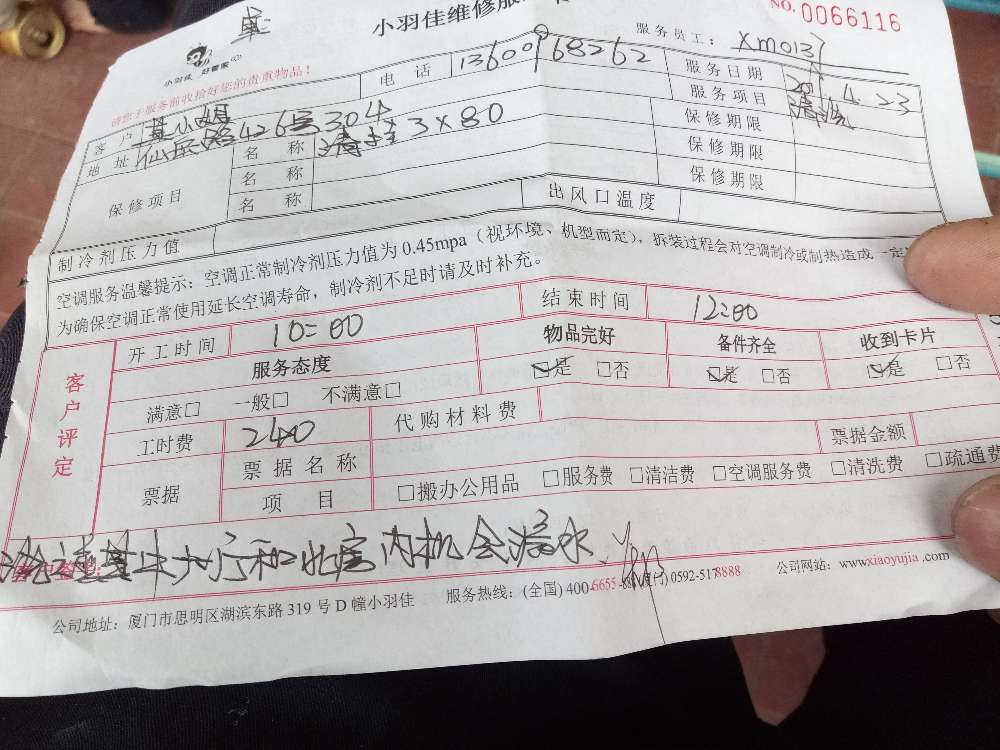 小羽佳维修服
NO. 0066116
小羽佳 好管家
请您于服务前收拾好您的贵重物品！
服务员工： XM0137
客户 小姐 电话 13600968262 服务日期 20 4.23
地址 仙岳路426号304 服务项目 清洗
保修项目 名称 清洗3×80 保修期限
名称 保修期限
名称 保修期限
制冷剂压力值 出风口温度
空调服务温馨提示：空调正常制冷剂压力值为0.45mpa（视环境、机型而定），拆装过程会对空调制冷或制热造成一定
为确保空调正常使用延长空调寿命，制冷剂不足时请及时补充。
客户评定
开工时间 10:00 结束时间 12:00
服务态度 物品完好 备件齐全 收到卡片
满意□ 一般□ 不满意□ ☑是 □否 ☑是 □否 ☑是 □否
工时费 240 代购材料费
票据 票据名称 票据金额
项目 □搬办公用品 □服务费 □清洁费 □空调服务费 □清洗费 □疏通费
大厅和卧室内机会漏水
公司地址：厦门市思明区湖滨东路319号D幢小羽佳 服务热线：(全国) 400-6655- (厦门) 0592-5178888 公司网站：www.xiaoyujia.com